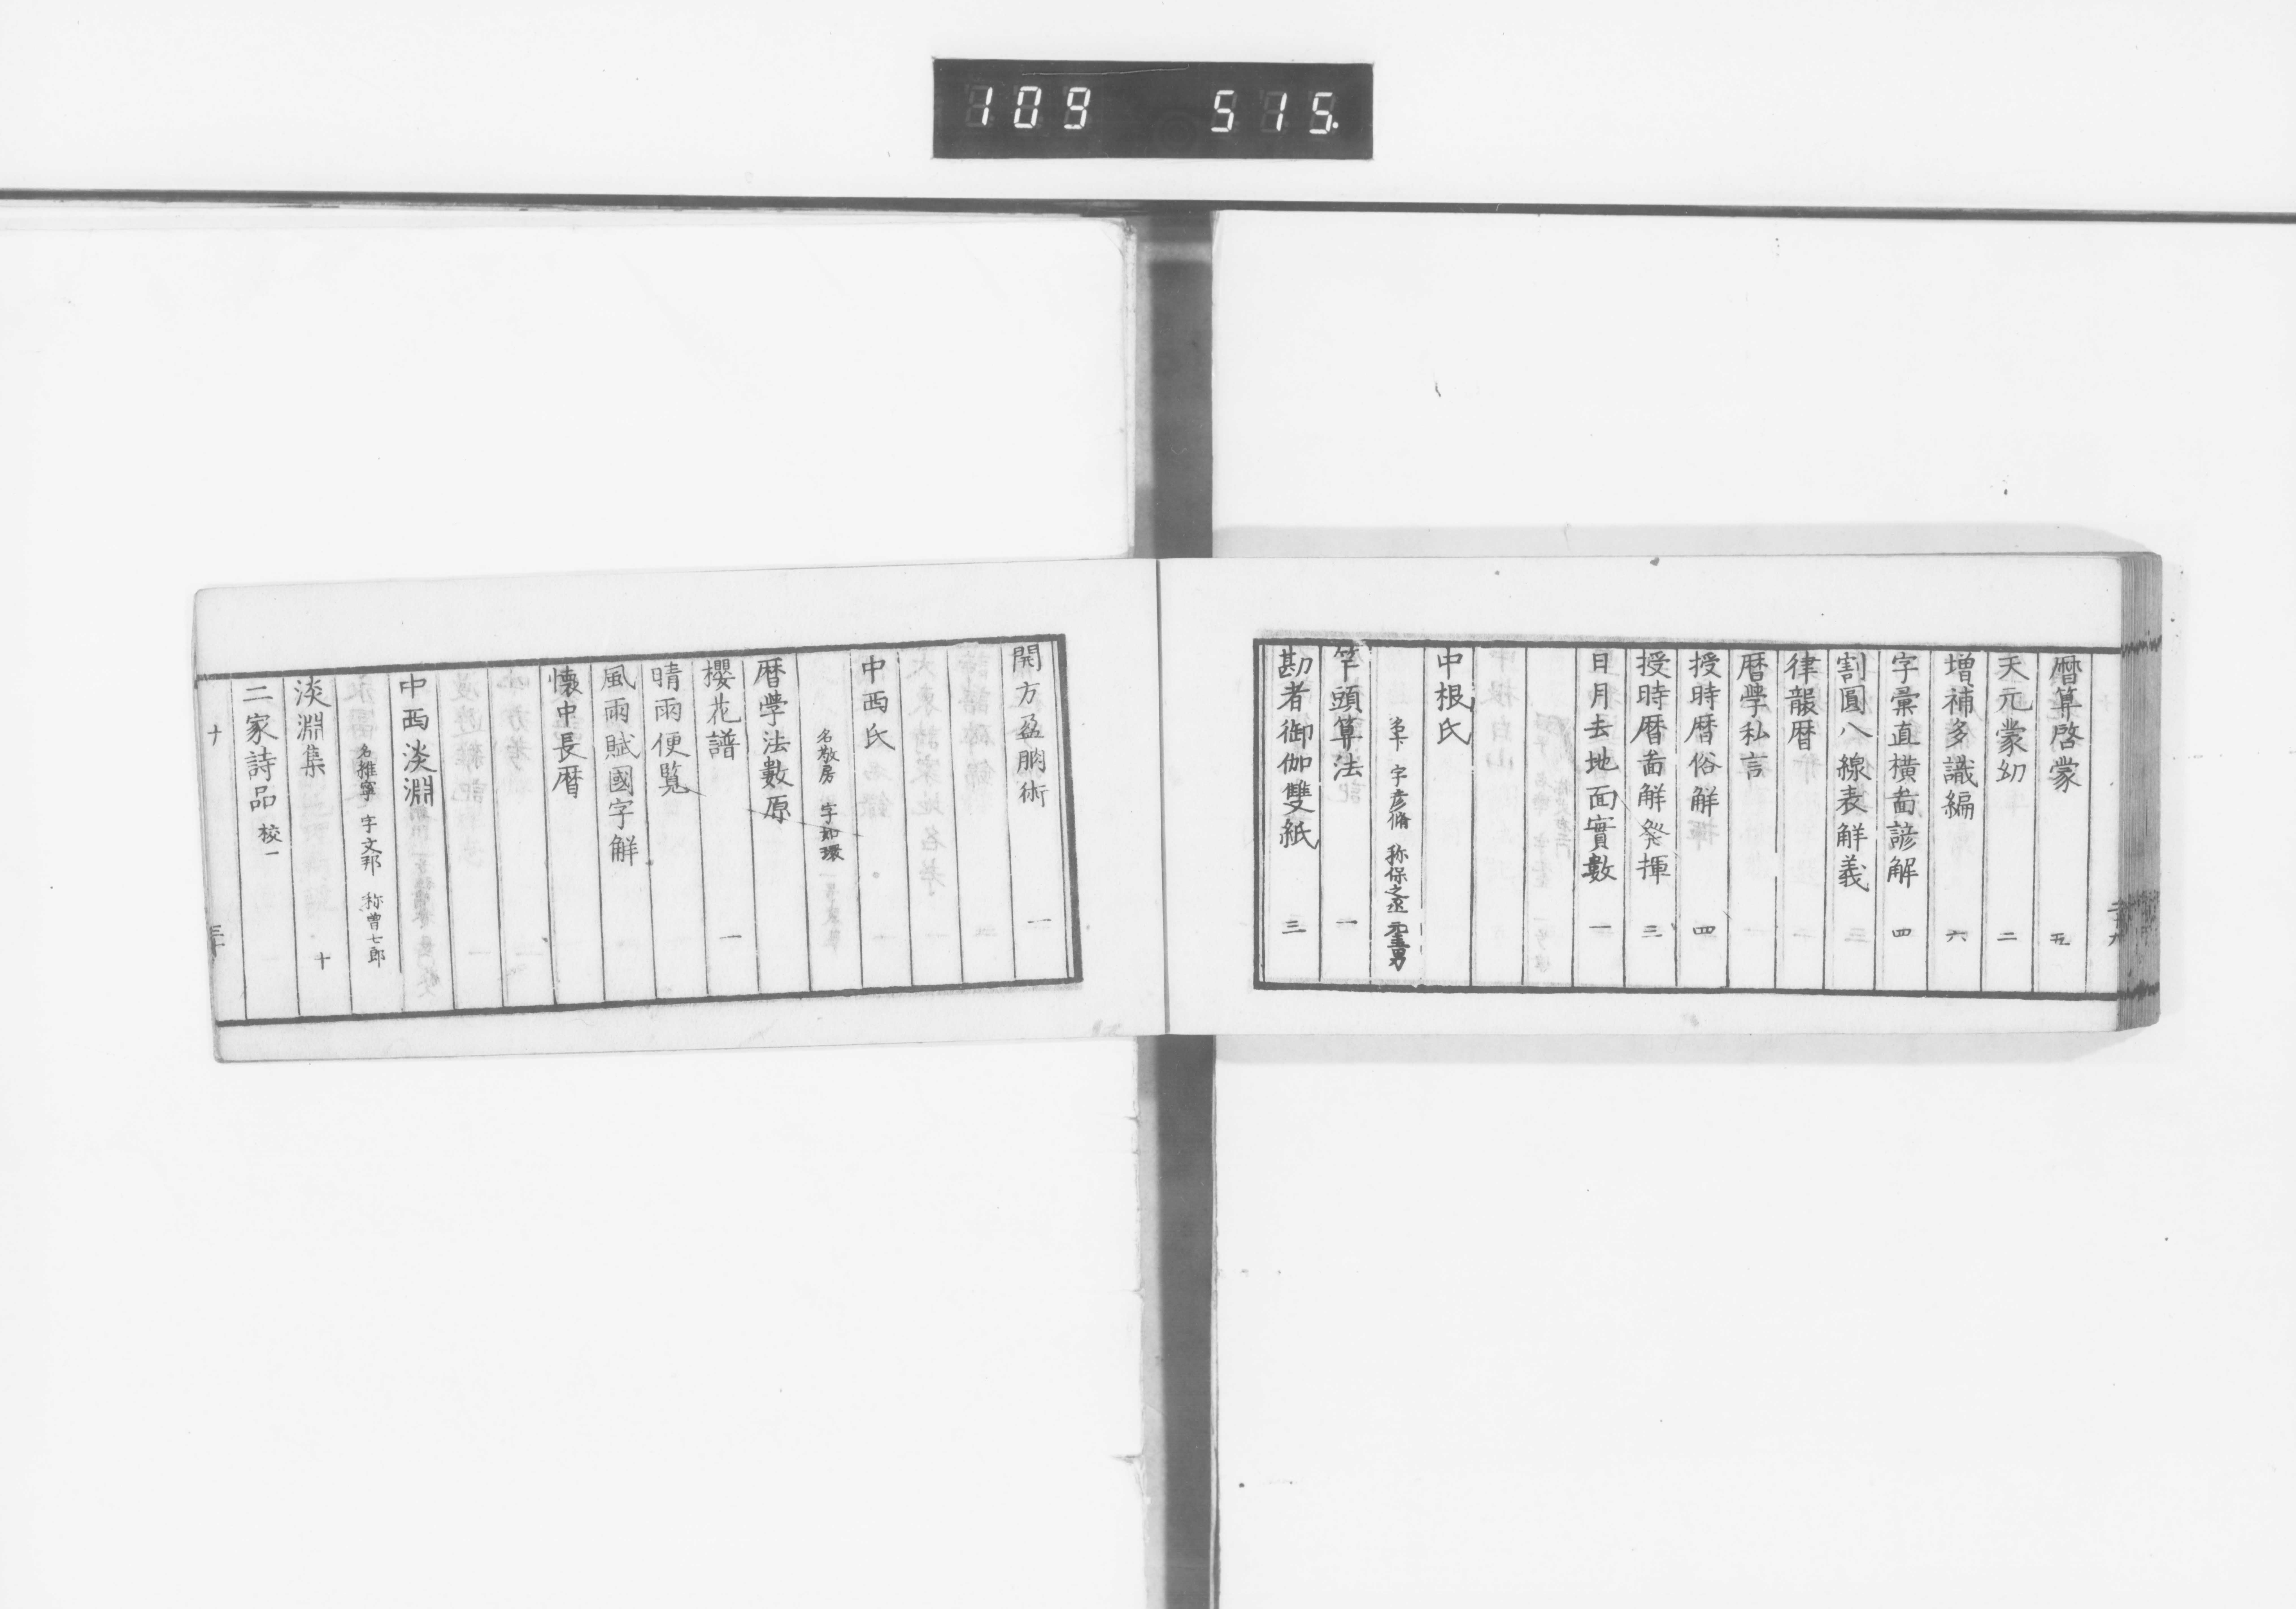 109 515.
暦算啓蒙 五
天元蒙幼 二
増補多識編 六
字彙直横啚諺解 四
割圓八線表解義 三
律襲暦 二
暦學私言
授時暦俗解 四
授時暦啚解発揮 三
日月去地面實數 一
中根氏
字彦脩 称保之丞 元圭男
竿頭算法 一
勘者御伽雙紙 三
開方盈朒術 一
中西氏
名敬房 字如環
暦學法數原
櫻花譜 一
晴雨便覧
風雨賦國字解
懐中長暦
中西淡淵
名維寧 字文邦 称曽七郎
淡淵集 十
二家詩品 校一
十